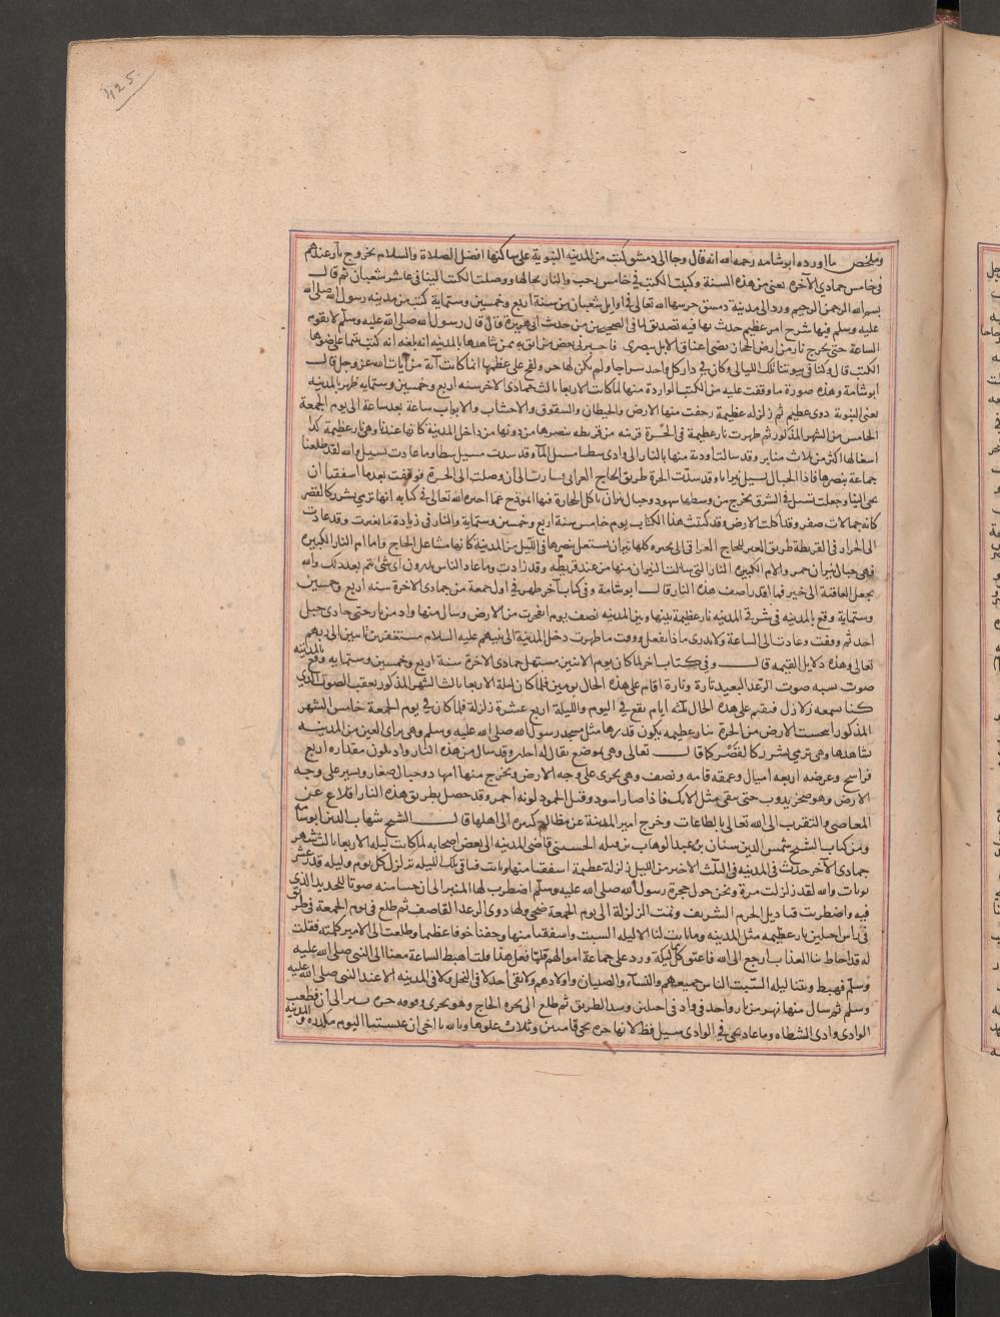 425
وملخص ما اورده ابو شامه رحمه الله انه قال وجا الى دمشق كتب من المدينه النبوية على ساكنها افضل الصلاة والسلام بخروج نار عندهم
فى خامس جمادى الآخره يعنى من هذه السنة وكتبت الكتب في خامس رجب والنار بحالها ووصلت الكتب الينا فى عاشر شعبان ثم قال
بسم الله الرحمن الرحيم ورد الى مدينة دمشق حرسها الله تعالى فى اوايل شعبان من سنة اربع وخمسين وستماية كتب من مدينه رسول الله صلى الله
عليه وسلم فيها شرح امر عظيم حدث بها فيه تصديق لما فى الصحيحين من حدث ابى هريره قال قال رسول الله صلى الله عليه وسلم لا تقوم
الساعة حتى يخرج نار من ارض الحجاز تضى اعناق الابل ببصرى فاخبرنى بعض من اثق به ممن شاهدها بالمدينه انه بلغه انه كتب بتيما على ضوها
الكتب قال وكنا فى بيوتنا تلك الليالى وكان فى دار كل واحد سراجا ولم يكن لها حر ولفح على عظمها انما كانت آية من آيات الله عز وجل قال
ابو شامة وهذه صورة ما وقفت عليه من الكتب الواردة منها لما كانت الاربعا ثالث جمادى الاخر سنه اربع وخمسين وستمايه ظهر بالمدينه
يعنى النبوية دوى عظيم ثم زلزله عظيمة رجفت منها الارض والحيطان والسقوق والاخشاب والابواب ساعة بعد ساعة الى يوم الجمعة
الخامس من الشهر المذكور ثم ظهرت نار عظيمة فى الحرة قريبه من قريظه نبصرها من دورنا من داخل المدينة كانها عندنا وهى نار عظيمة كذا
اشعالها اكثر من ثلاث مناير وقد سالت اودية منها بالنار الى وادى شظا مسيل الماء وقد سدت مسيل شظا وما عادت تسيل والله لقد طلعنا
جماعة نبصرها فاذا الجبال تسيل نيرانا وقد سدت الحرة طريق الحاج العراق فسارت الى ان وصلت الى الحرة فوقفت بعد ما اشفقنا ان
تجى الينا وجعلت تسيل فى الشرق يخرج من وسطها سهود وجبال نيران تاكل الحجارة فيها انموذج عما اخبر الله تعالى فى كتابه انها ترمى بشرر كالقصر
كانه جمالات صفر وقد اكلت الارض وقد كتبت هذا الكتاب يوم خامس سنة اربع وخمسين وستماية والنار فى زيادة ما تغيرت وقد عادت
الى الحرار فى القريظة طريق العير للحاج العراق الى بحيره كلها نيران تشتعل نبصرها فى الليل من المدينة كانها مشاعل الحاج واما ام النار الكبيره
فهى جبال نيران حمر والام الكبيره النار التى سالت النيران منها من عند قريظه وقد زادت وما عاد الناس يدرون اى شى يتم بعد ذلك والله
يجعل العاقبة الى خير فما اقدر اصف هذه النار قال ابو شامة وفى كتاب آخر ظهر فى اول جمعة من جمادى الاخرة سنه اربع وخمسين
وستماية وقع بالمدينه فى شرقى المدينه نار عظيمة بينها وبين المدينه نصف يوم انفجرت من الارض وسال منها واد من نار حتى حادى جبل
احد ثم وقفت وعادت الى الساعة ولا ندرى ماذا نفعل ووقت ما ظهرت دخل المدينة الى نبيهم عليه السلام مستغفرين تايبين الى ربهم
تعالى وهذه دلايل القيمه قال وفى كتاب اخر لما كان يوم الاثنين مستهل جمادى الاخرة سنة اربع وخمسين وستمايه وقع بالمدينه
صوت يشبه صوت الرعد البعيد تارة وتارة اقام على هذه الحال يومين فلما كان ليلة الاربعا ثالث الشهر المذكور تعقب الصوت الذي
كنا نسمعه زلازل فيقيم على هذه الحال ثلثه ايام يقع في اليوم والليلة اربع عشرة زلزلة فلما كان في يوم الجمعة خامس الشهر
المذكور انبجست الارض من الحرة بنار عظيمه يكون قدرها مثل مسجد رسول الله صلى الله عليه وسلم وهى براى العين من المدينه
نشاهدها وهى ترمى بشرر كالقصر كما قال تعالى وهى بموضع يقال له اجلين وقد سال من هذه النار واد يكون مقداره اربع
فراسخ وعرضه اربعه اميال وعمقه قامه ونصف وهى تجرى على وجه الارض وتخرج منها امهاد وجبال صغار ويسير على وجه
الارض وهو صخر يذوب حتى يبقى مثل الانك فاذا صار اسود وقبل الجمود لونه أحمر وقد حصل بطريق هذه النار اقلاع عن
المعاصى والتقرب الى الله تعالى بالطاعات وخرج امير المدينة عن مظالم كثيره الى اهلها قال الشيخ شهاب الدين ابو شامه
ومن كتاب الشيخ شمس الدين سنان بن عبد الوهاب بن نميله الحسينى قاضى المدينه الى بعض اصحابه لما كانت ليله الاربعا ثالث شهر
جمادى الآخر حدثت فى المدينه فى الثلث الاخير من الليل زلزلة عظيمة اشفقنا منها وباتت فى باقى تلك الليله تزلزل كل يوم وليله قدر عشر
نوبات والله لقد زلزلت مرة ونحن حول حجرة رسول الله صلى الله عليه وسلم اضطرب لها المنبر الى ان سمعنا منه صوتا للحديد الذى
فيه واضطربت قناديل الحرم الشريف وتمت الزلزلة الى يوم الجمعة ضحى ولها دوى الرعد القاصف ثم طلع فى يوم الجمعة فى طريق
فى راس اجلين نار عظيمه مثل المدينه وما بانت لنا الا ليله السبت واشفقنا منها وخفنا خوفا عظيما وطلعت الى الامير كلمته فقلت
له قد احاط بنا العذاب ارجع الى الله فاعتق كل مماليكه ورد على جماعة اموالهم فلما فعل هذا قلت اهبط الساعة معنا الى النبى صلى الله عليه
وسلم فهبط وبتنا ليله السبت الناس جميعهم والنسآء والصبيان واولادهم ولا بقى أحد لا فى النخل ولا فى المدينه الا عند النبى صلى الله عليه
وسلم ثم سال منها نهر من نار واحد فى وادى اجلين وسد الطريق ثم طلع الى بحره الحاج وهو بحرى وفوقه حره يسير الى ان قطعت
الوادى وادى الشظاه وما عاد يجى في الوادى سيل قط لانها حره تجى قامتين وثلاث علوها وبالله يا اخى ان عيشتنا اليوم مكدره والمدينه